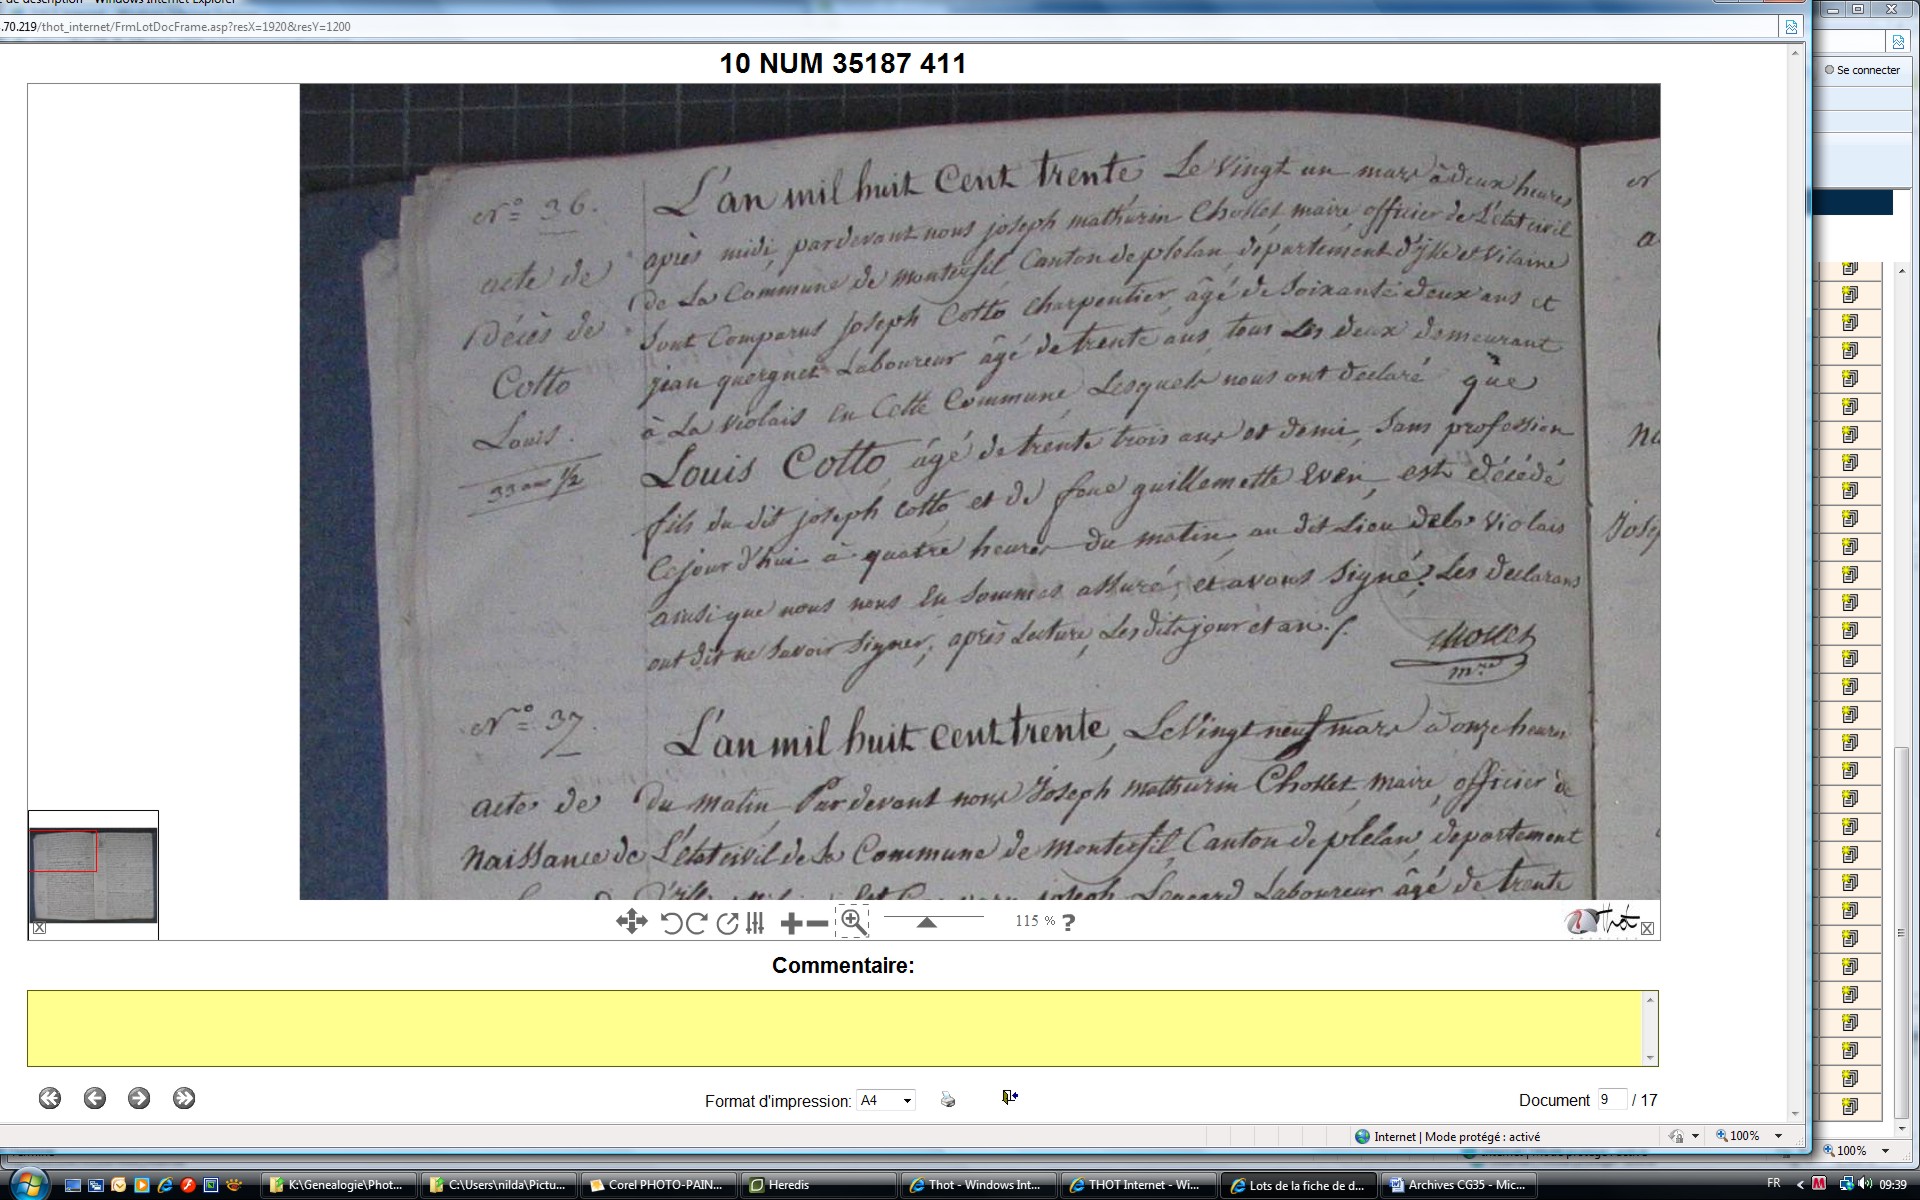 de description - Windows Internet Explorer
.70.219/thot_internet/FrmLotDocFrame.asp?resX=1920&resY=1200
Se connecter
10 NUM 35187 411
N° 36.
acte de
Décès de
Cotto
Louis.
33 ans 1/2
L'an mil huit Cent trente Le Vingt un mars à deux heures
après midi, pardevant nous joseph mathurin Chollet, maire officier de L'état civil
de La Commune de Monterfil Canton de plelan, département d'ille et Vilaine
Sont Comparus joseph Cotto charpentier, âgé de Soixante deux ans et
jean quergnet Laboureur âgé de trente ans, tous Les deux demeurant
à La Violais en Cette Commune Lesquels nous ont declaré que
Louis Cotto âgé de trente trois ans et demi, Sans profession
fils du dit joseph cotto, et de feue guillemette Even, est décédé
Cejourd'hui à quatre heures du matin, au dit Lieu dela Violais
ainsi que nous nous en Sommes assuré, et avons Signé, Les declarans
ont dit ne Savoir Signer, après Lecture, Les dits jour et an.
Chollet
mre
N° 37
acte de
Naissance de
L'an mil huit cent trente, Le Vingt neuf mars à onze heures
du matin Par devant nous Joseph mathurin Chollet, maire, officier de
L'état civil de La Commune de Monterfil, Canton de plelan, departement
joseph Laboureur âgé de trente
115 % ?
Thot
Commentaire:
Format d'impression: A4
Document 9 / 17
Internet | Mode protégé : activé
100%
100%
K:\Genealogie\Phot...
C:\Users\nilda\Pictu...
Corel PHOTO-PAIN...
Heredis
Thot - Windows Int...
THOT Internet - Wi...
Lots de la fiche de d...
Archives CG35 - Mic...
FR
09:39